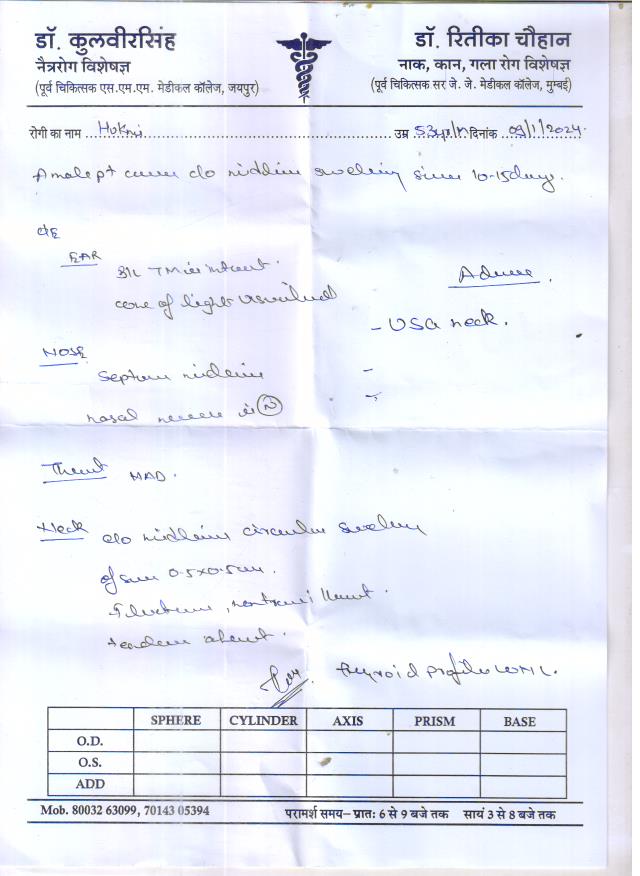 डॉ. कुलवीरसिंह
नैत्ररोग विशेषज्ञ
(पूर्व चिकित्सक एस.एम.एम. मेडीकल कॉलेज, जयपुर)
डॉ. रितीका चौहान
नाक, कान, गला रोग विशेषज्ञ
(पूर्व चिकित्सक सर जे. जे. मेडीकल कॉलेज, मुम्बई)
रोगी का नाम ... उम्र 53yr/M दिनांक 09/1/2024
A male pt came c/o midline swelling since 10-15 days.
EAR
B/L TM is intact.
cone of light visualised
Advice.
- USG neck.
NOSE
Septum midline
nasal mucosa is (N)
Throat NAD.
Neck c/o midline circular swelling
of size 0.5x0.5cm.
thyroid profile WNL.
SPHERE CYLINDER AXIS PRISM BASE
O.D.
O.S.
ADD
Mob. 80032 63099, 70143 05394
परामर्श समय– प्रातः 6 से 9 बजे तक सायं 3 से 8 बजे तक